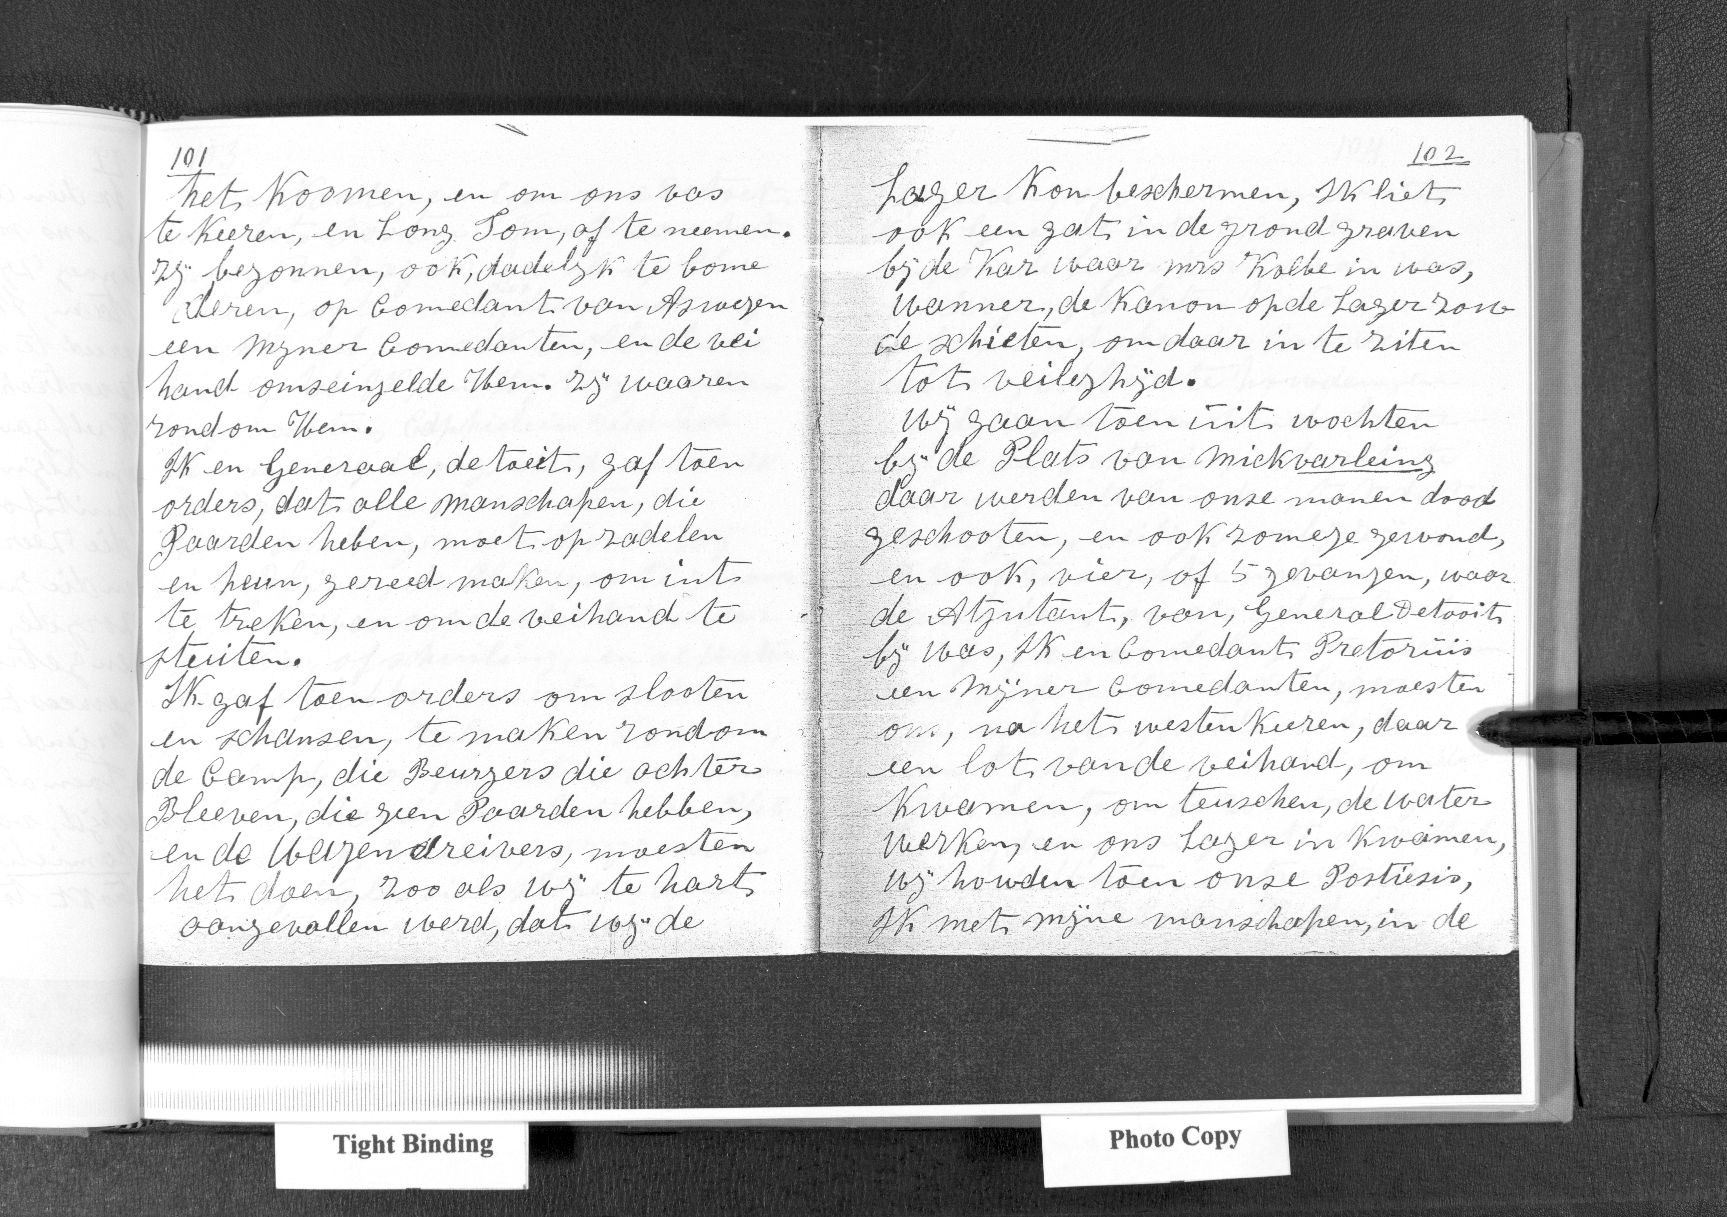 101
het koomen, en om ons vas
te keeren, en Long Tom, af te neemen.
zÿ begonnen, ook, dadelyk te bome
deren, op Comedant van Aswegen
een Myner Comedanten, en de vei
hand omseingelde Hem. zÿ waaren
rondom Hem.
IK en Generaal, detoeit, gaf toen
orders, dat alle manschapen, die
Paarden heben, moet op zadelen
en heun, gereed maken, om int
te treken, en om de veihand te
steuiten.
IK gaf toen orders om slooten
en schansen, te maken rondom
de Camp, die Beurgers die achter
Bleeven, die geen Paarden hebben,
en de Wagendreivers, moesten
het doen, zoo als wÿ te hart
aangevallen werd, dat wÿ de
102
Lager kon beschermen, IK liet
ook een gat in de grond graven
bÿ de Kar waar mrs Kolbe in was,
wanner, de Kanon op de Lager zow
de schieten, om daar in te ziten
tot veileghÿd.
wÿ gaan toen uit wochten
bÿ de Plats van Mickvarleing
daar werden van onse manen dood
geschooten, en ook zomege gewond,
en ook, vier, of 5 gevangen, waar
de Atjutant, van, General Detooit
bÿ was, IK en Comedant Pretoriüs
een Mÿner Comedanten, moesten
ons, na het westen keeren, daar
een lot van de veihand, om
Kwamen, om teuschen, de water
werken, en ons Lager in kwamen,
wÿ howden toen onse Postiesis,
IK met mÿne manschapen, in de
Tight Binding
Photo Copy